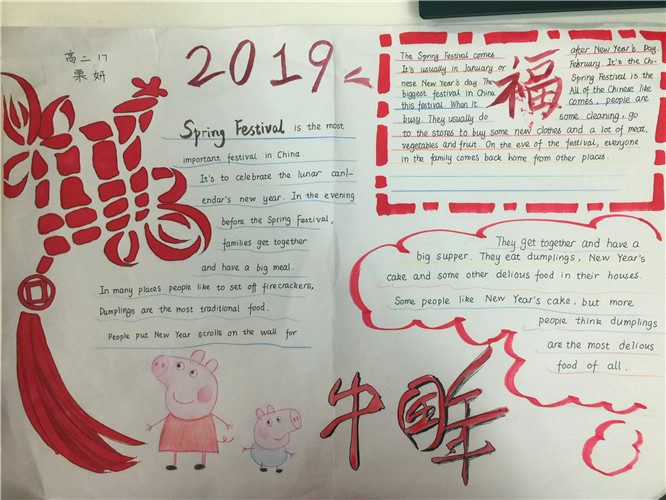 高二17
栗妍
2019
Spring Festival is the most
important festival in China.
It's to celebrate the lunar canl-
endar's new year. In the evening
before the Spring Festival,
families get together
and have a big meal.
In many places people like to set off firecrackers,
Dumplings are the most traditional food.
People put New Year scrolls on the wall for
The Spring Festival comes after New Year's Day.
It's usually in January or February. It's the Chi-
nese New Year's day. The Spring Festival is the
biggest festival in China All of the Chinese like
this festival. When it comes, people are
busy. They usually do some cleaning, go
to the stores to buy some new clothes and a lot of meat,
vegetables and fruit. On the eve of the festival, everyone
in the family comes back home from other places.
福
They get together and have a
big supper. They eat dumplings, New Year's
cake and some other delious food in their houses.
Some people like New Year's cake, but more
people think dumplings
are the most delious
food of all.
中国年